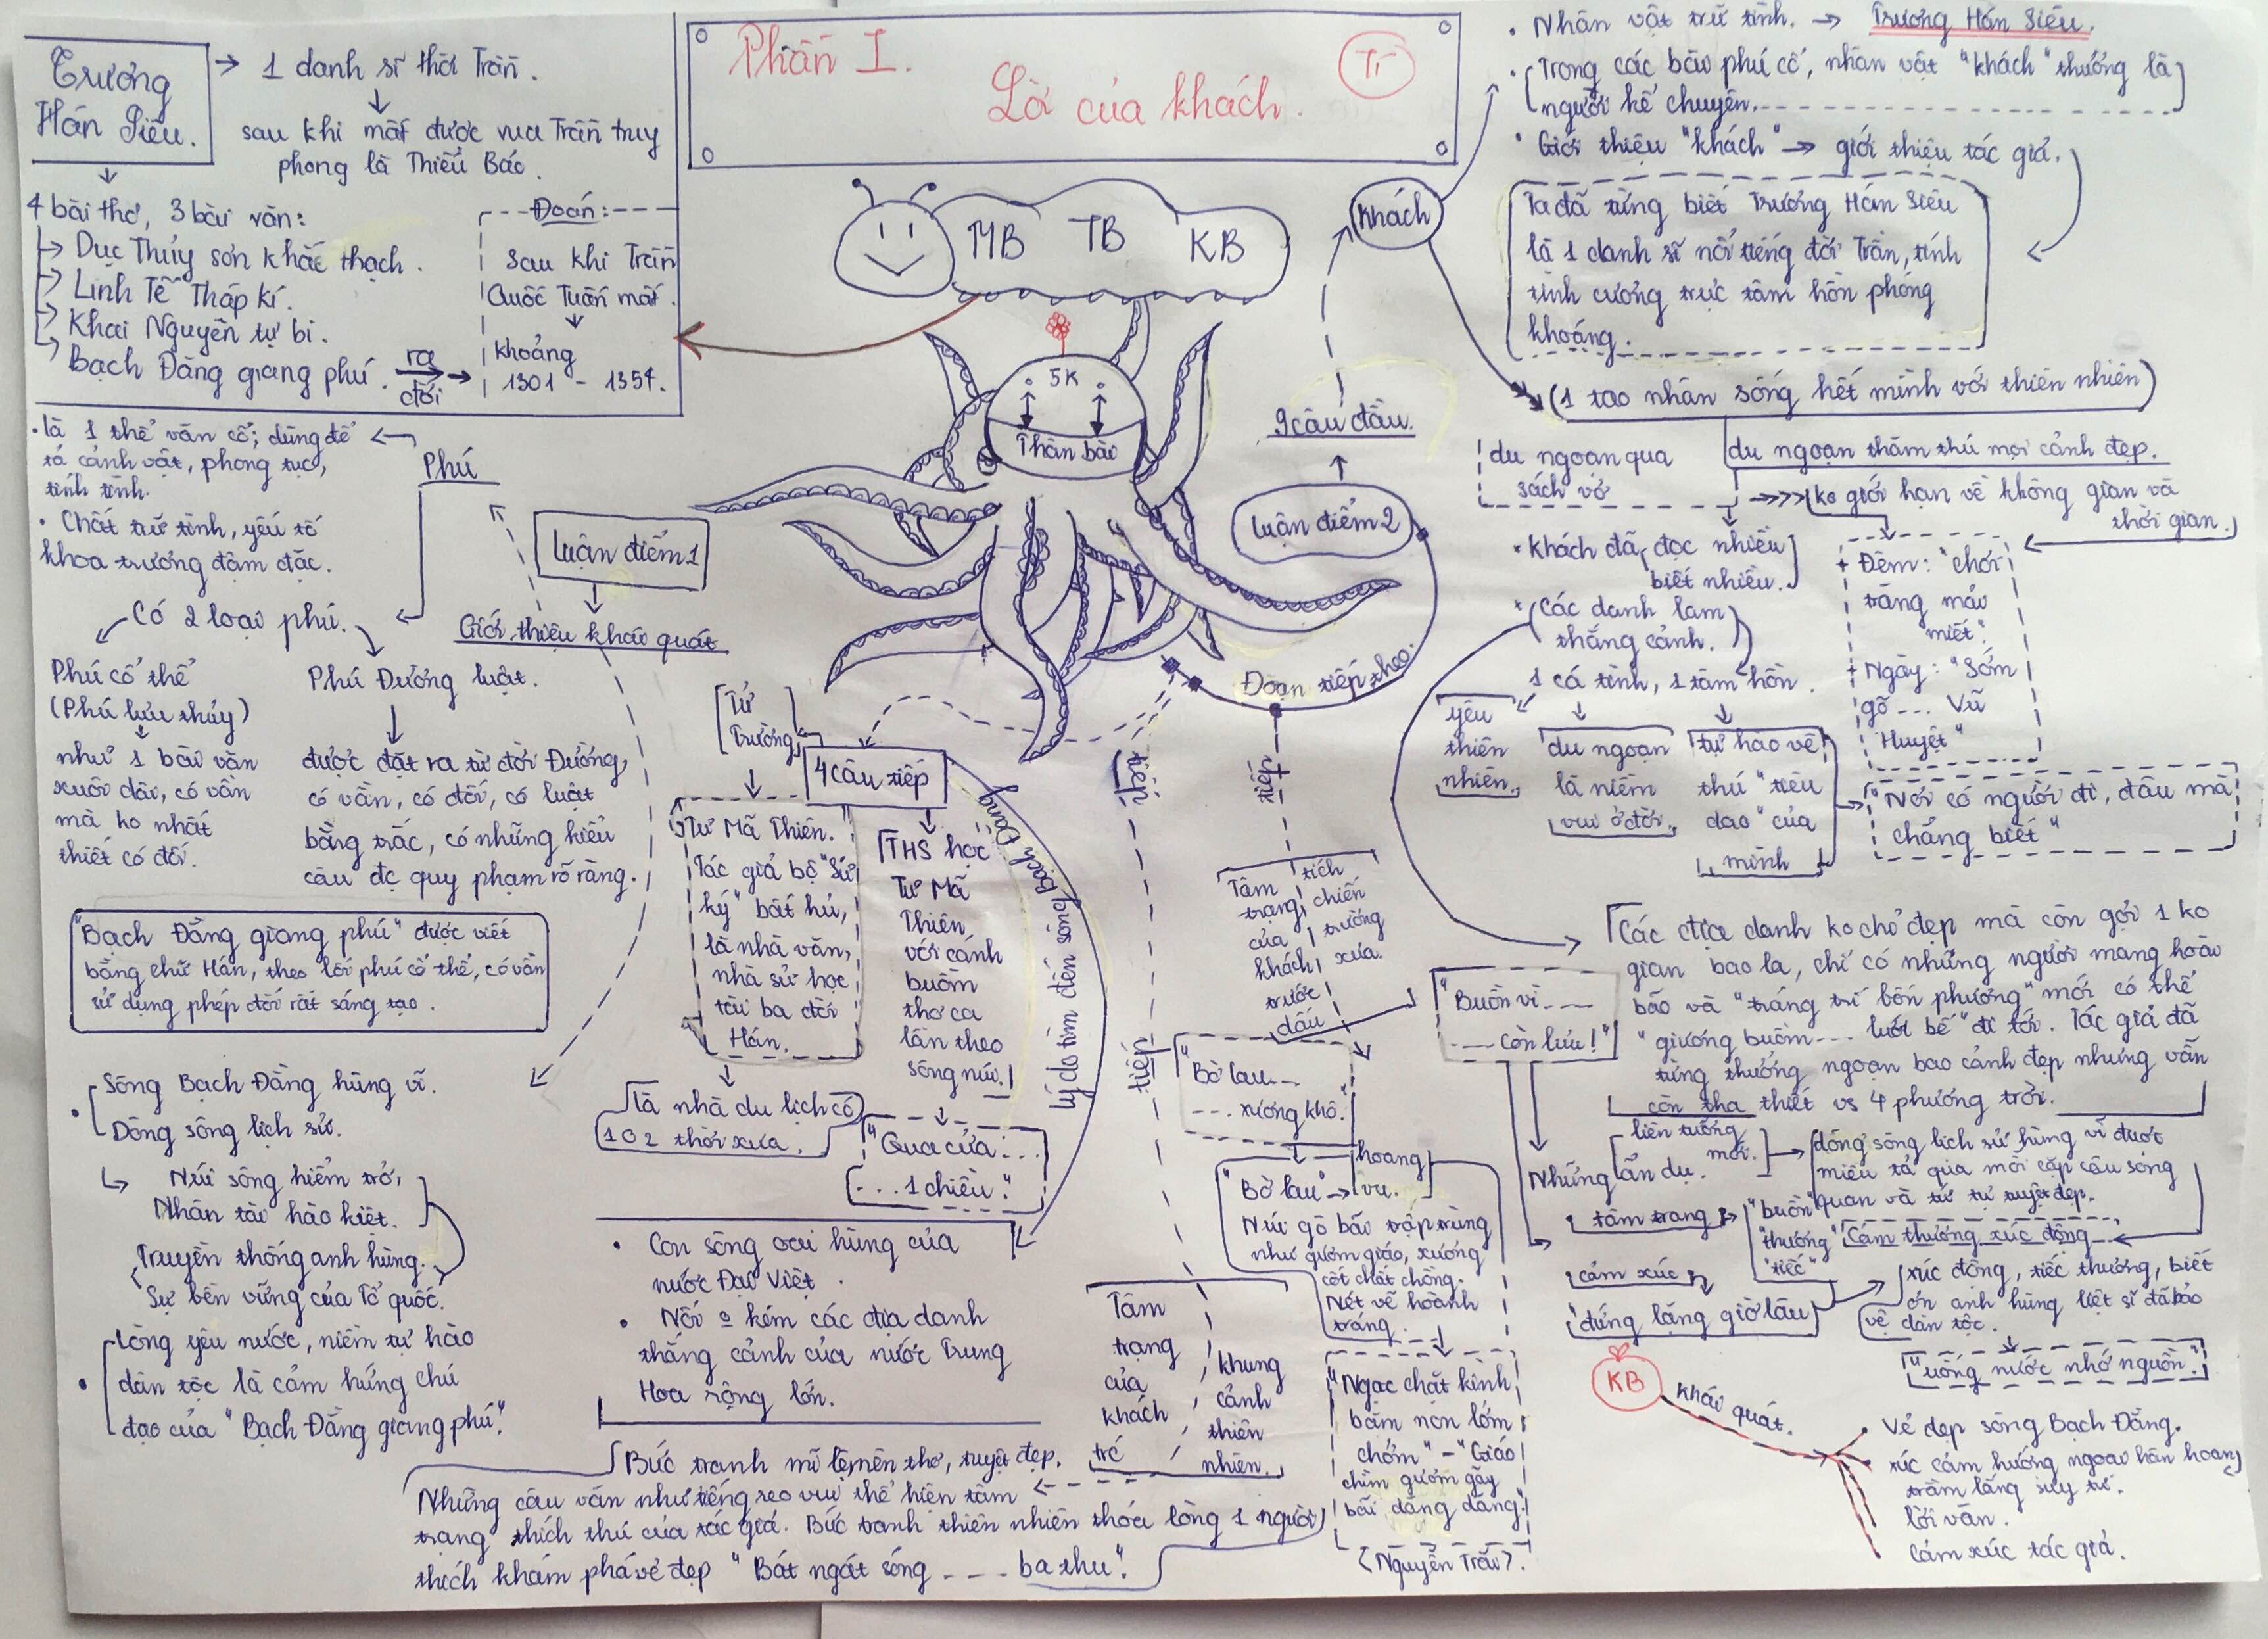 Trương
Hán Siêu.
→ 1 danh sĩ thời Trần.
sau khi mất được vua Trần truy
phong là Thiếu Bảo.
4 bài thơ, 3 bài văn:
Dục Thúy sơn khắc thạch.
Linh Tế Tháp kí.
Khai Nguyên tự bi.
Bạch Đằng giang phú.
ra
đời
Đoán:
sau khi Trần
Quốc Tuấn mất.
khoảng
1301 - 1354.
Phần I.
Lời của khách.
MB TB KB
5K
Thân bài
Phú
• là 1 thể văn cổ; dùng để
tả cảnh vật, phong tục,
tính tình.
• Chất trữ tình, yếu tố
khoa trương đậm đặc.
Có 2 loại phú.
Phú cổ thể
(Phú lưu thủy)
như 1 bài văn
xuôi dài, có vần
mà ko nhất
thiết có đối.
Phú Đường luật.
được đặt ra từ đời Đường,
có vần, có đối, có luật
bằng trắc, có những kiểu
câu đc quy phạm rõ ràng.
Luận điểm 1
Giới thiệu khái quát
"Bạch Đằng giang phú" được viết
bằng chữ Hán, theo lối phú cổ thể, có vần
sử dụng phép đối rất sáng tạo.
• Sông Bạch Đằng hùng vĩ.
Dòng sông lịch sử.
Núi sông hiểm trở,
Nhân tài hào kiệt.
Truyền thống anh hùng.
Sự bền vững của Tổ quốc.
• Lòng yêu nước, niềm tự hào
dân tộc là cảm hứng chủ
đạo của "Bạch Đằng giang phú".
Tử
Trường
4 câu tiếp
Tư Mã Thiên.
Tác giả bộ "Sử
ký" bất hủ,
là nhà văn,
nhà sử học
tài ba đời
Hán.
Là nhà du lịch có
1 0 2 thời xưa.
THS học
Tư Mã
Thiên
với cánh
buồm
thơ ca
lần theo
sông núi.
"Qua cửa...
...1 chiều."
lý do tìm đến sông Bạch Đằng
• Con sông oai hùng của
nước Đại Việt.
• Nói o kém các địa danh
thắng cảnh của nước Trung
Hoa rộng lớn.
tiếp
Tâm
trạng
của
khách
khung
cảnh
thiên
nhiên.
Bức tranh mĩ lệ, nên thơ, tuyệt đẹp.
Những câu văn như tiếng reo vui thể hiện tâm
trạng thích thú của tác giả. Bức tranh thiên nhiên thỏa lòng 1 người
thích khám phá vẻ đẹp "Bát ngát sóng .... ba thu".
Luận điểm 2
9 câu đầu.
Đoạn tiếp theo.
tiếp
Tâm
trạng
của
khách
trước
dấu
tích
chiến
trường
xưa.
"Bờ lau...
... xương khô."
"Bờ lau" → hoang
vu.
Núi gò bãi trập trùng
như gươm giáo, xương
cốt chất chồng.
Nét vẽ hoành
tráng.
"Ngạc chặt kình
băm non lởm
chởm" - "Giáo
chìm gươm gãy
bãi dăng dăng".
<Nguyễn Trãi>.
Khách
• Nhân vật trữ tình. → Trương Hán Siêu.
• Trong các bài phú cổ, nhân vật "khách" thường là
người kể chuyện.
• Giới thiệu "khách" → giới thiệu tác giả.
Ta đã từng biết Trương Hán Siêu
là 1 danh sĩ nổi tiếng đời Trần, tính
tình cương trực tâm hồn phóng
khoáng.
(1 tao nhân sống hết mình với thiên nhiên)
du ngoạn qua
sách vở
du ngoạn thăm thú mọi cảnh đẹp.
ko giới hạn về không gian và
thời gian.
* Khách đã đọc nhiều
biết nhiều.
* Các danh lam
thắng cảnh.
+ Đêm: "chơi
trăng mải
miết".
+ Ngày: "Sớm
gõ ... Vũ
Huyệt"
1 cá tính, 1 tâm hồn.
yêu
thiên
nhiên.
du ngoạn
là niềm
vui ở đời.
tự hào về
thú "tiêu
dao" của
mình
"Nơi có người đi, đâu mà
chẳng biết"
Các địa danh ko chỉ đẹp mà còn gợi 1 ko
gian bao la, chỉ có những người mang hoài
bão và "tráng trí bốn phương" mới có thể
"giương buồm... lướt bể" đi tới. Tác giả đã
từng thưởng ngoạn bao cảnh đẹp nhưng vẫn
còn tha thiết vs 4 phương trời.
"Buồn vì ....
.... còn lưu!"
Những
liên tưởng
ẩn dụ.
mới.
dòng sông lịch sử hùng vĩ được
miêu tả qua mỗi cặp câu song
quan và từ tự tuyệt đẹp.
tâm trạng
"buồn"
"thương"
"tiếc"
Cảm thương xúc động
cảm xúc
"đứng lặng giờ lâu"
xúc động, tiếc thương, biết
ơn anh hùng liệt sĩ đã bảo
vệ dân tộc.
"uống nước nhớ nguồn".
KB
khái quát.
Vẻ đẹp sông Bạch Đằng.
xúc cảm hướng ngoại hân hoan,
trầm lắng suy tư.
lời văn.
cảm xúc tác giả.